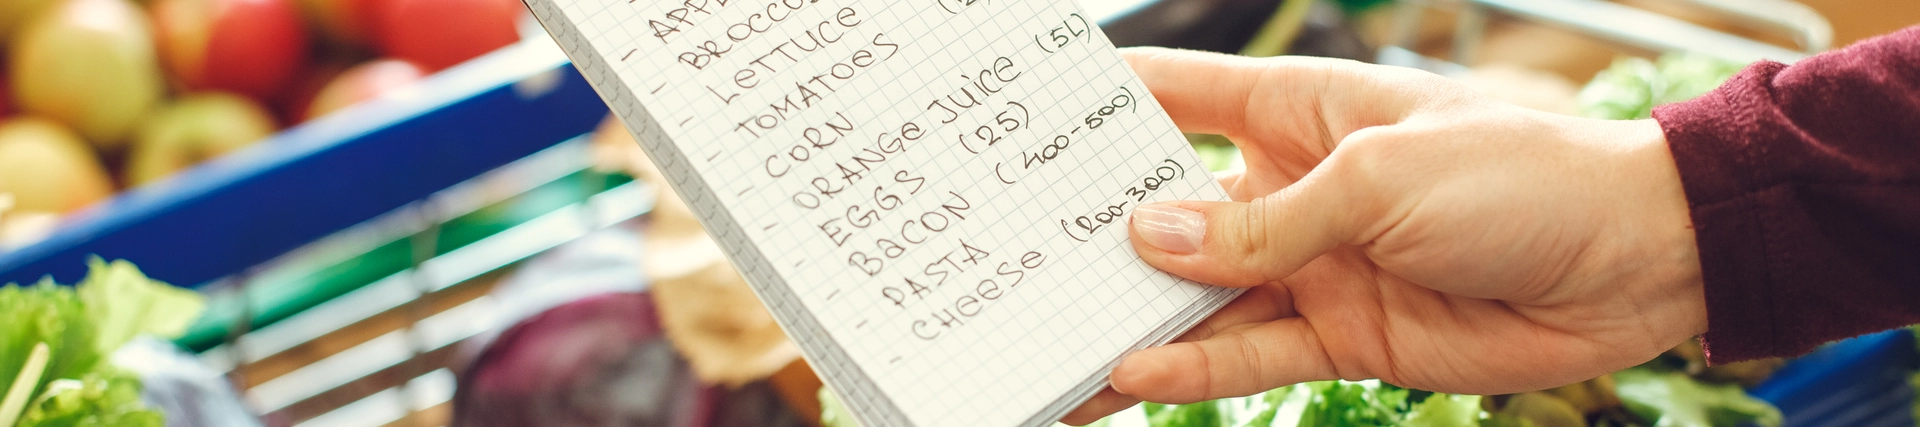 - APPL
- BROCCO
- LETTUCE
- TOMATOES
- CORN
- ORANGE JUICE (5L)
- EGGS (25)
- BACON (400-500)
- PASTA
- CHEESE (200-300)